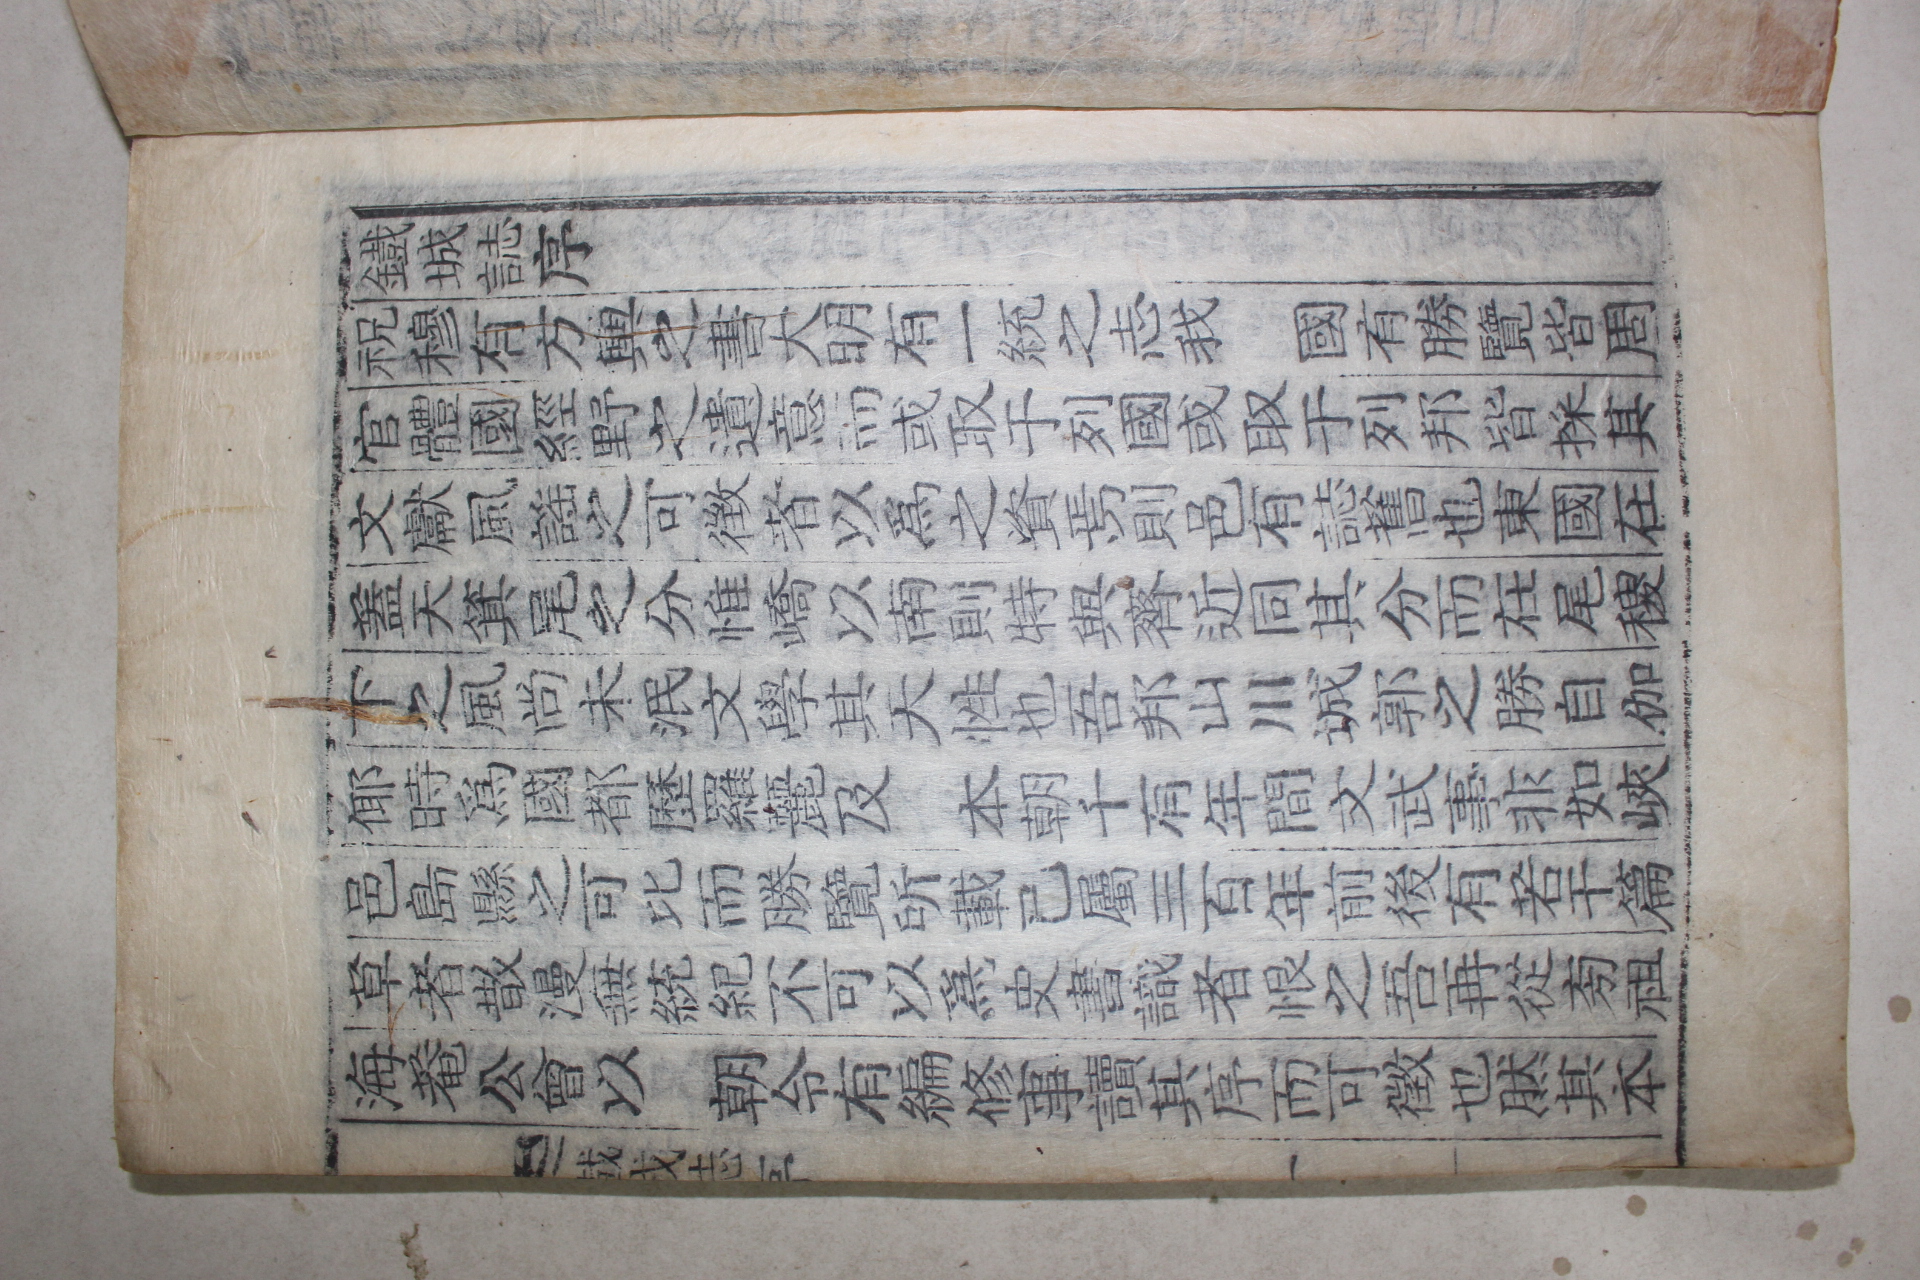 鐵城誌序
祝穆有方輿之書大明有一統之志我　國有勝覽皆周
官體國經野之遺意而或取于列國或取于列邦皆採其
文獻風謠之可徵者以爲之資焉則邑有誌舊也東國在
蓋天箕尾之分惟嶠以南則特與齊近同其分而在尾稷
下之風尚未泯文學其天性也吾邦山川城郭之勝自伽
倻時爲國都歷羅麗及　本朝千有年間文武事非如峽
邑島縣之可比而勝覽所載已屬三百年前後有若干篇
草者散漫無統紀不可以爲史書識者恨之吾再從祖
海菴公曾以　朝令有編修事讀其序而可徵也然其本